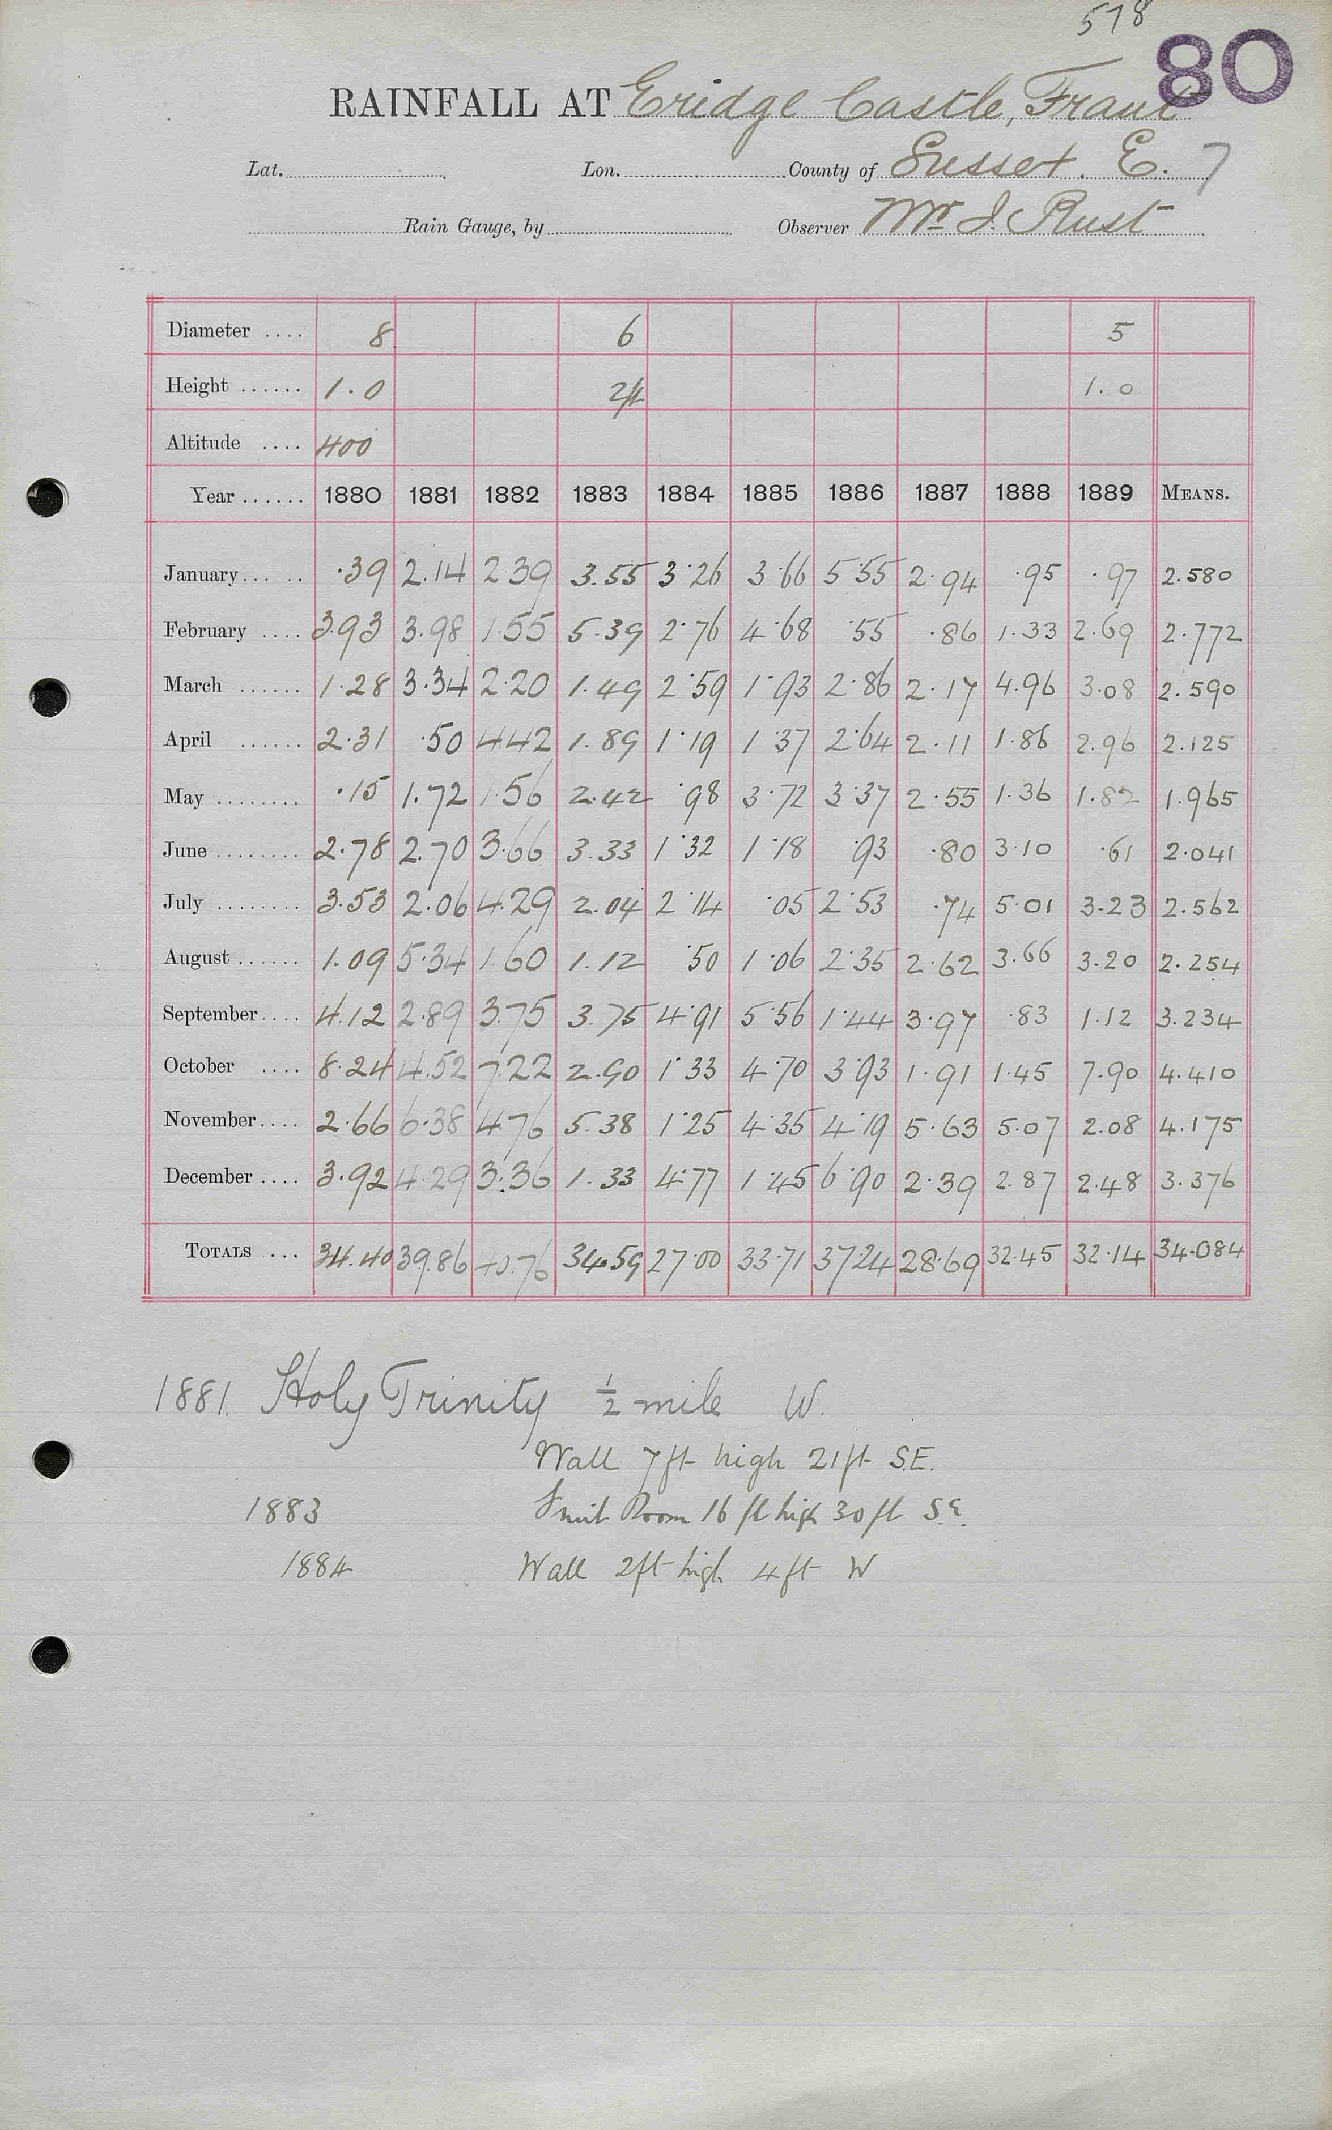 578
80
RAINFALL AT Eridge Castle, Frant
Lat. Lon. County of Sussex. E. 7
Rain Gauge, by Observer Mr J. Rust
Diameter .... 8 6 5
Height ...... 1.0 1.0
Altitude .... 400
Year ...... 1880 1881 1882 1883 1884 1885 1886 1887 1888 1889 MEANS.
January... .. .39 2.14 2.39 3.55 3.26 3.66 5.55 2.94 .95 .97 2.580
February .... 3.93 3.98 1.55 5.39 2.76 4.68 .55 .86 1.33 2.69 2.772
March ...... 1.28 3.34 2.20 1.49 2.59 1.93 2.86 2.17 4.96 3.08 2.590
April ...... 2.31 .50 4.42 1.89 1.19 1.37 2.64 2.11 1.86 2.96 2.125
May ........ .15 1.72 1.56 2.42 .98 3.72 3.37 2.55 1.36 1.82 1.965
June ........ 2.78 2.70 3.66 3.33 1.32 1.18 .93 .80 3.10 .61 2.041
July ........ 3.53 2.06 4.29 2.04 2.14 .05 2.53 .74 5.01 3.23 2.562
August ...... 1.09 5.34 1.60 1.12 .50 1.06 2.35 2.62 3.66 3.20 2.254
September.... 4.12 2.89 3.75 3.75 4.91 5.56 1.44 3.97 .83 1.12 3.234
October .... 8.24 4.52 7.22 2.90 1.33 4.70 3.93 1.91 1.45 7.90 4.410
November.... 2.66 6.38 4.76 5.38 1.25 4.35 4.19 5.63 5.07 2.08 4.175
December .... 3.92 4.29 3.36 1.33 4.77 1.45 6.90 2.39 2.87 2.48 3.376
TOTALS ... 34.40 39.86 40.76 34.59 27.00 33.71 37.24 28.69 32.45 32.14 34.084
1881. Holy Trinity ½ mile W.
Wall 7ft high 21ft S.E.
1883 Fruit Room 16 ft high 30 ft S.E.
1884 Wall 2ft high 4ft W